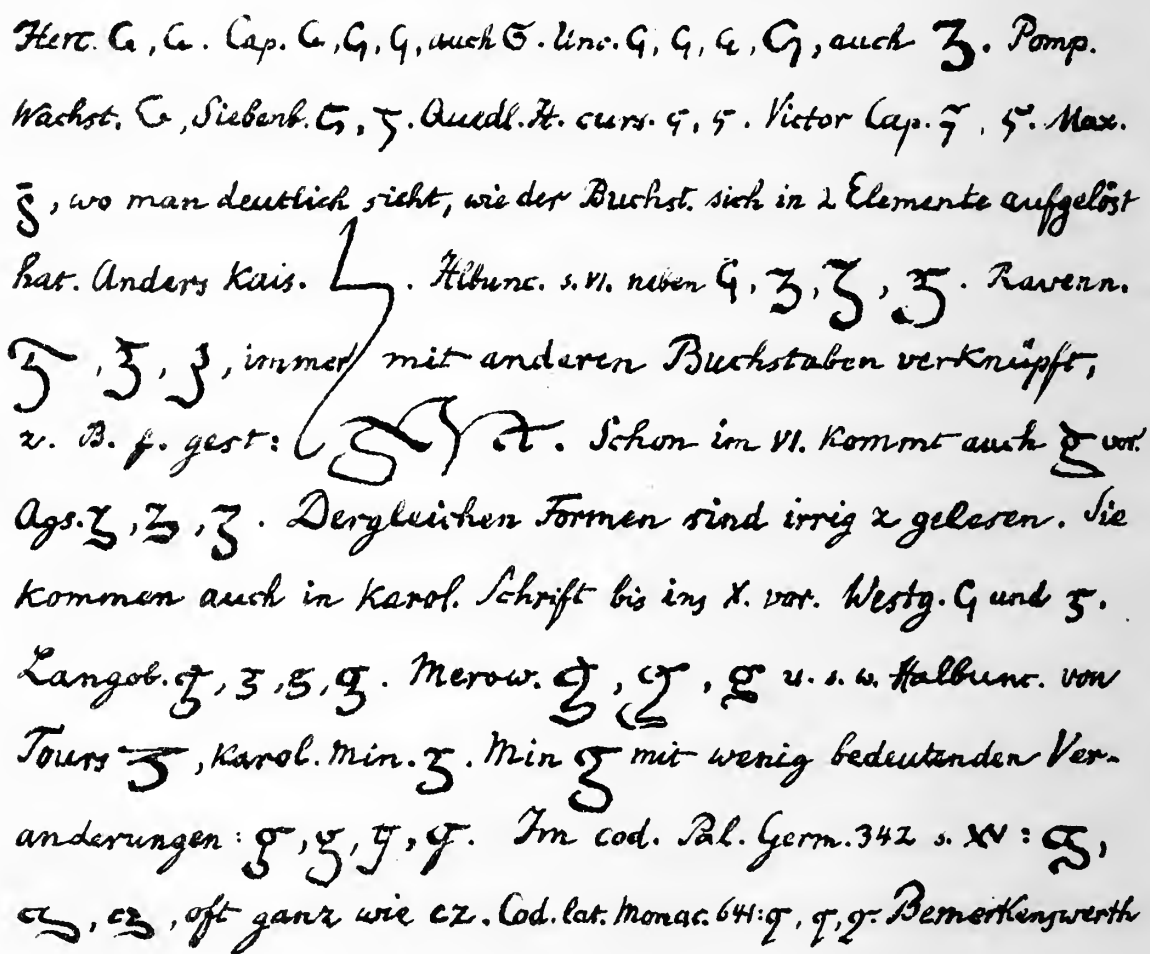 Herc. G, G. Cap. G, G, G, auch G. Unc. G, G, G, G, auch Ʒ. Pomp.
Wachst. G, Siebenb. G, ʒ. Quedl. It. curs. G, G. Victor Cap. ʒ, G. Max.
g, wo man deutlich sieht, wie der Buchst. sich in 2 Elemente aufgelöst
hat. Anders Kais. . Hlbunc. s. VI. neben G, ʒ, ʒ, ʒ. Ravenn.
ʒ, ʒ, ʒ, immer mit anderen Buchstaben verknüpft,
z. B. f. gest: . Schon im VI. kommt auch g vor.
Ags. ʒ, ʒ, ʒ. Dergleichen Formen sind irrig z gelesen. Sie
kommen auch in karol. Schrift bis ins X. vor. Westg. G und ʒ.
Langob. g, ʒ, g, g. Merow. g, g, g u. s. w. Halbunc. von
Tours ʒ, karol. Min. ʒ. Min g mit wenig bedeutenden Ver-
anderungen: g, g, g, g. Im cod. Pal. Germ. 342 s. XV: g,
g, g, oft ganz wie cz. Cod. lat. Monac. 641: g, g, g. Bemerkenswerth